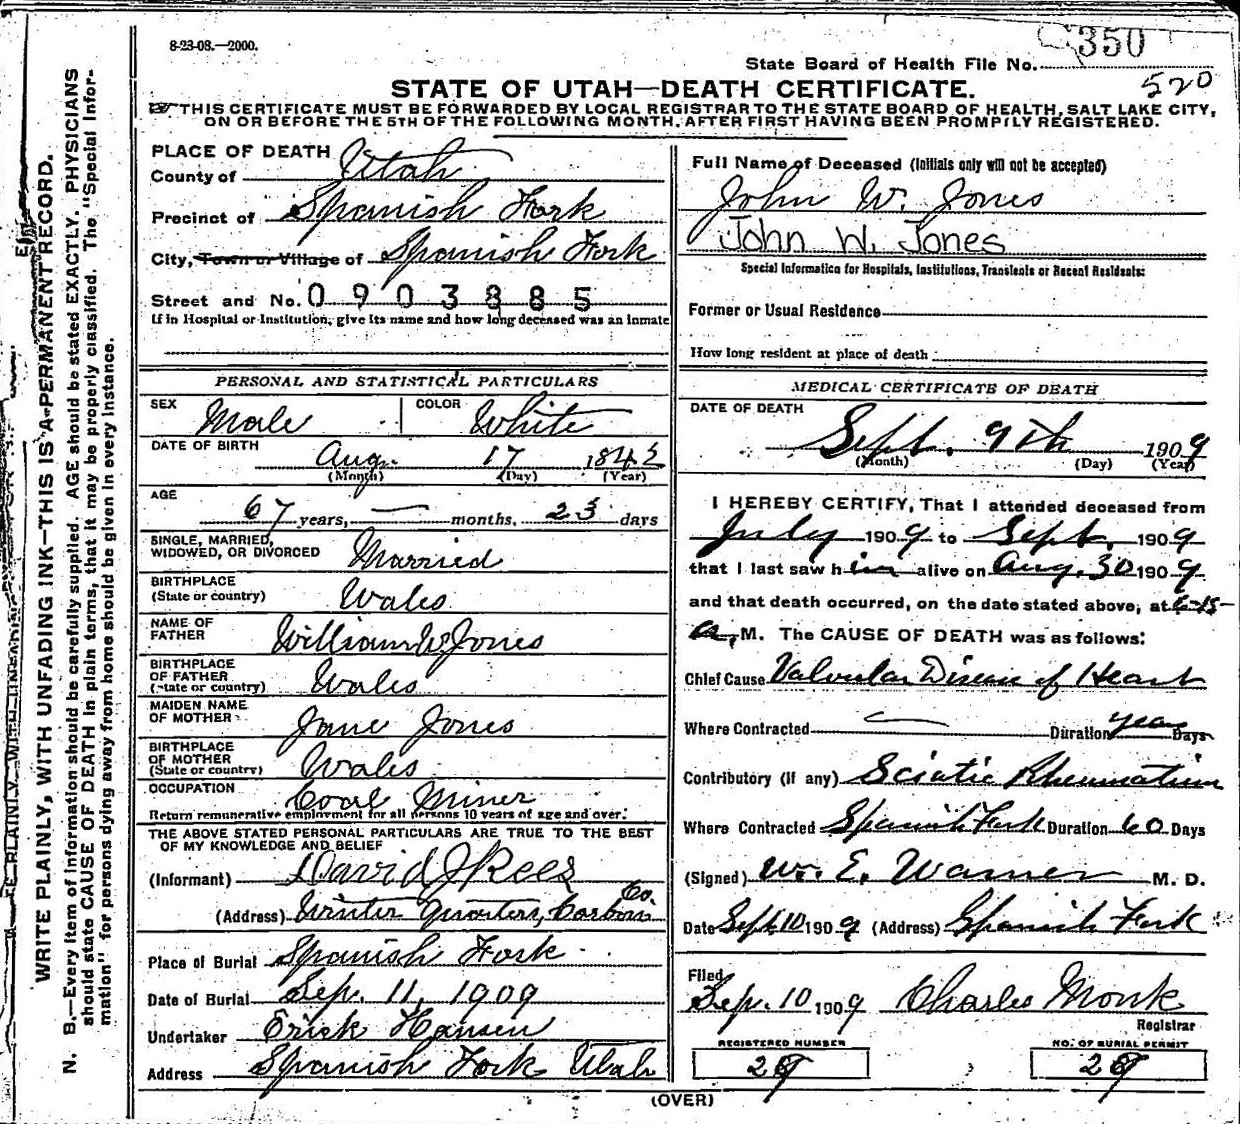 8-23-08.—2000.
350
State Board of Health File No.
520
STATE OF UTAH—DEATH CERTIFICATE.
THIS CERTIFICATE MUST BE FORWARDED BY LOCAL REGISTRAR TO THE STATE BOARD OF HEALTH, SALT LAKE CITY,
ON OR BEFORE THE 5TH OF THE FOLLOWING MONTH, AFTER FIRST HAVING BEEN PROMPILY REGISTERED.
WRITE PLAINLY, WITH UNFADING INK—THIS IS A PERMANENT RECORD.
N. B.—Every item of information should be carefully supplied. AGE should be stated EXACTLY. PHYSICIANS
should state CAUSE OF DEATH in plain terms, that it may be properly classified. The "Special Infor-
mation" for persons dying away from home should be given in every instance.
PLACE OF DEATH
County of Utah
Precinct of Spanish Fork
City, Town or Village of Spanish Fork
Street and No. 0903885
If in Hospital or Institution, give its name and how long deceased was an inmate
PERSONAL AND STATISTICAL PARTICULARS
SEX Male COLOR White
DATE OF BIRTH
Aug. 17 1842
(Month) (Day) (Year)
AGE
67 years, — months, 23 days
SINGLE, MARRIED,
WIDOWED, OR DIVORCED Married
BIRTHPLACE
(State or country) Wales
NAME OF
FATHER William W Jones
BIRTHPLACE
OF FATHER
(State or country) Wales
MAIDEN NAME
OF MOTHER Jane Jones
BIRTHPLACE
OF MOTHER
(State or country) Wales
OCCUPATION Coal Miner
Return remunerative employment for all persons 10 years of age and over.
THE ABOVE STATED PERSONAL PARTICULARS ARE TRUE TO THE BEST
OF MY KNOWLEDGE AND BELIEF
(Informant) David J Rees
(Address) Winter Quarters, Carbon Co.
Place of Burial Spanish Fork
Date of Burial Sep. 11, 1909
Undertaker Erick Hansen
Address Spanish Fork Utah
Full Name of Deceased (Initials only will not be accepted)
John W. Jones
John W. Jones
Special Information for Hospitals, Institutions, Transients or Recent Residents:
Former or Usual Residence
How long resident at place of death
MEDICAL CERTIFICATE OF DEATH
DATE OF DEATH
Sept. 9th 1909
(Month) (Day) (Year)
I HEREBY CERTIFY, That I attended deceased from
July 1909 to Sept. 1909
that I last saw him alive on Aug. 30 1909
and that death occurred, on the date stated above, at 6-15-
a, M. The CAUSE OF DEATH was as follows:
Chief Cause Valvular Disease of Heart
Where Contracted — Duration years Days
Contributory (if any) Sciatic Rheumatism
Where Contracted Spanish Fork Duration 60 Days
(Signed) Wm. E. Warner M. D.
Date Sept. 10 1909 (Address) Spanish Fork
Filed
Sep. 10 1909 Charles Monk
Registrar
REGISTERED NUMBER NO. OF BURIAL PERMIT
(OVER)